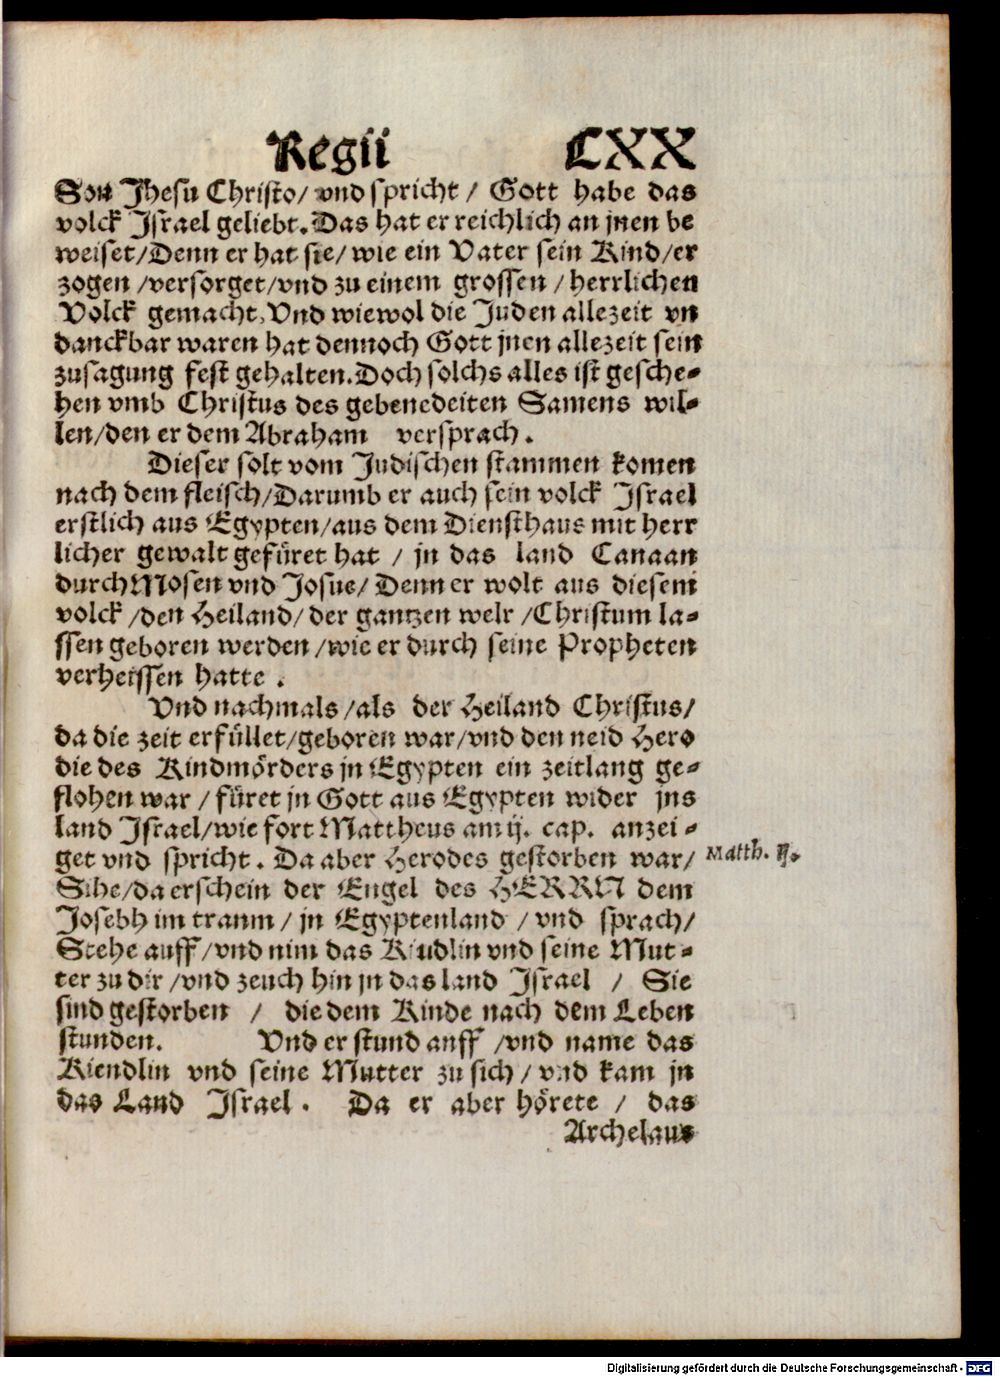 Regii CXX
Son Jhesu Christo/ vnd spricht / Gott habe das
volck Israel geliebt. Das hat er reichlich an jnen be
weiset/Denn er hat sie/ wie ein Vater sein Kind/er
zogen /versorget/vnd zu einem grossen / herrlichen
Volck gemacht, Vnd wiewol die Juden allezeit vn
danckbar waren hat dennoch Gott jnen allezeit sein
zusagung fest gehalten. Doch solchs alles ist gesche-
hen vmb Christus des gebenedeiten Samens wil-
len/den er dem Abraham versprach.
Dieser solt vom Judischen stammen komen
nach dem fleisch/Darumb er auch sein volck Israel
erstlich aus Egypten/aus dem Diensthaus mit herr
licher gewalt gefüret hat / jn das land Canaan
durch Mosen vnd Josue/ Denn er wolt aus diesem
volck /den Heiland/ der gantzen welr /Christum la-
ssen geboren werden /wie er durch seine Propheten
verheissen hatte .
Vnd nachmals /als der Heiland Christus/
da die zeit erfüllet/geboren war/vnd den neid Hero
die des Kindmörders jn Egypten ein zeitlang ge-
flohen war / füret jn Gott aus Egypten wider jns
land Israel/wie fort Mattheus am ij. cap. anzei -
get vnd spricht . Da aber Herodes gestorben war/ Matth. ij.
Sihe/da erschein der Engel des HERRN dem
Josebh im traum / jn Egyptenland / vnd sprach/
Stehe auff /vnd nim das Kindlin vnd seine Mut-
ter zu dir /vnd zeuch hin jn das land Israel / Sie
sind gestorben / die dem Kinde nach dem Leben
stunden. Vnd er stund auff /vnd name das
Kiendlin vnd seine Mutter zu sich / vnd kam jn
das Land Israel . Da er aber hörete / das
Archelaus
Digitalisierung gefördert durch die Deutsche Forschungsgemeinschaft - DFG